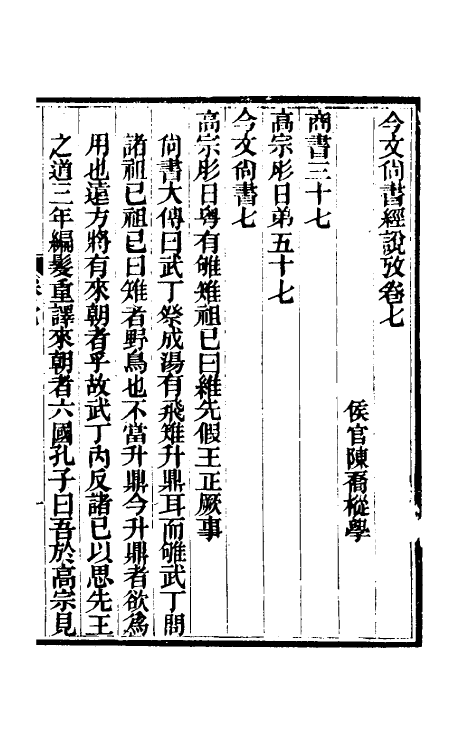 今文尙書經說攷卷七
侯官陳喬樅學
商書三十七
高宗肜日弟五十七
今文尙書七
高宗肜日粤有雊雉祖己曰維先假王正厥事
尙書大傳曰武丁祭成湯有飛雉升鼎耳而雊武丁問
諸祖己祖己曰雉者野鳥也不當升鼎今升鼎者欲爲
用也遠方將有來朝者乎故武丁內反諸己以思先王
之道三年編髮重譯來朝者六國孔子曰吾於高宗見